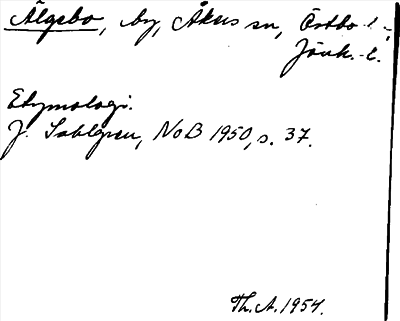 Älgebo, by, Åkers sn, Östbo h.,
Jönk. l.
Etymologi.
J. Sahlgren, NoB 1950, s. 37.
Th. A. 1954.